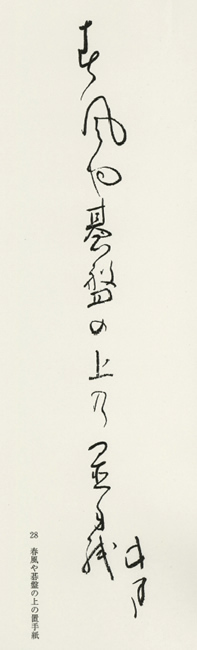 春風や碁盤の上の置手紙
28 春風や碁盤の上の置手紙